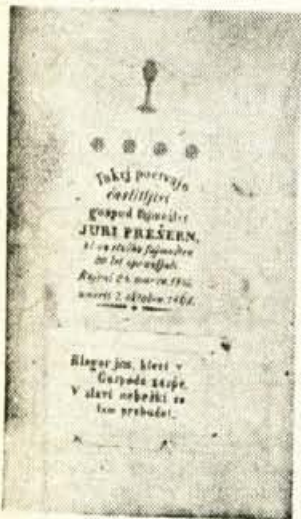 Tukej počivajo
častitljivi
gospod fajmošter
JURI PREŠERN,
ki so službo fajmoštra
20 let opravljali.
Rojeni 24. marca
umerli 7. oktobra 1868.
Blagor jim, kteri v
Gospodu zaspé,
V slavi nebeški se
tam prebudé!